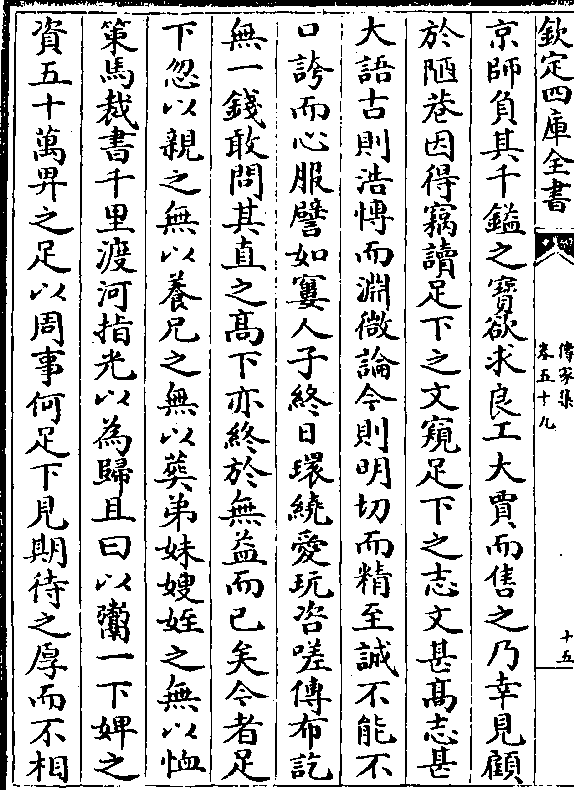 欽定四庫全書
傳家集
卷五十九
十五
京師負其千鎰之寶欲求良工大賈而售之乃幸見顧
於陋巷因得竊讀足下之文窺足下之志文甚髙志甚
大語古則浩愽而淵微論今則明切而精至誠不能不
口誇而心服譬如窶人子終日環繞愛玩咨嗟傳布訖
無一錢敢問其直之髙下亦終於無益而已矣今者足
下忽以親之無以養兄之無以葬弟妹嫂姪之無以恤
策馬裁書千里渡河指光以為歸且曰以鬻一下婢之
資五十萬畀之足以周事何足下見期待之厚而不相